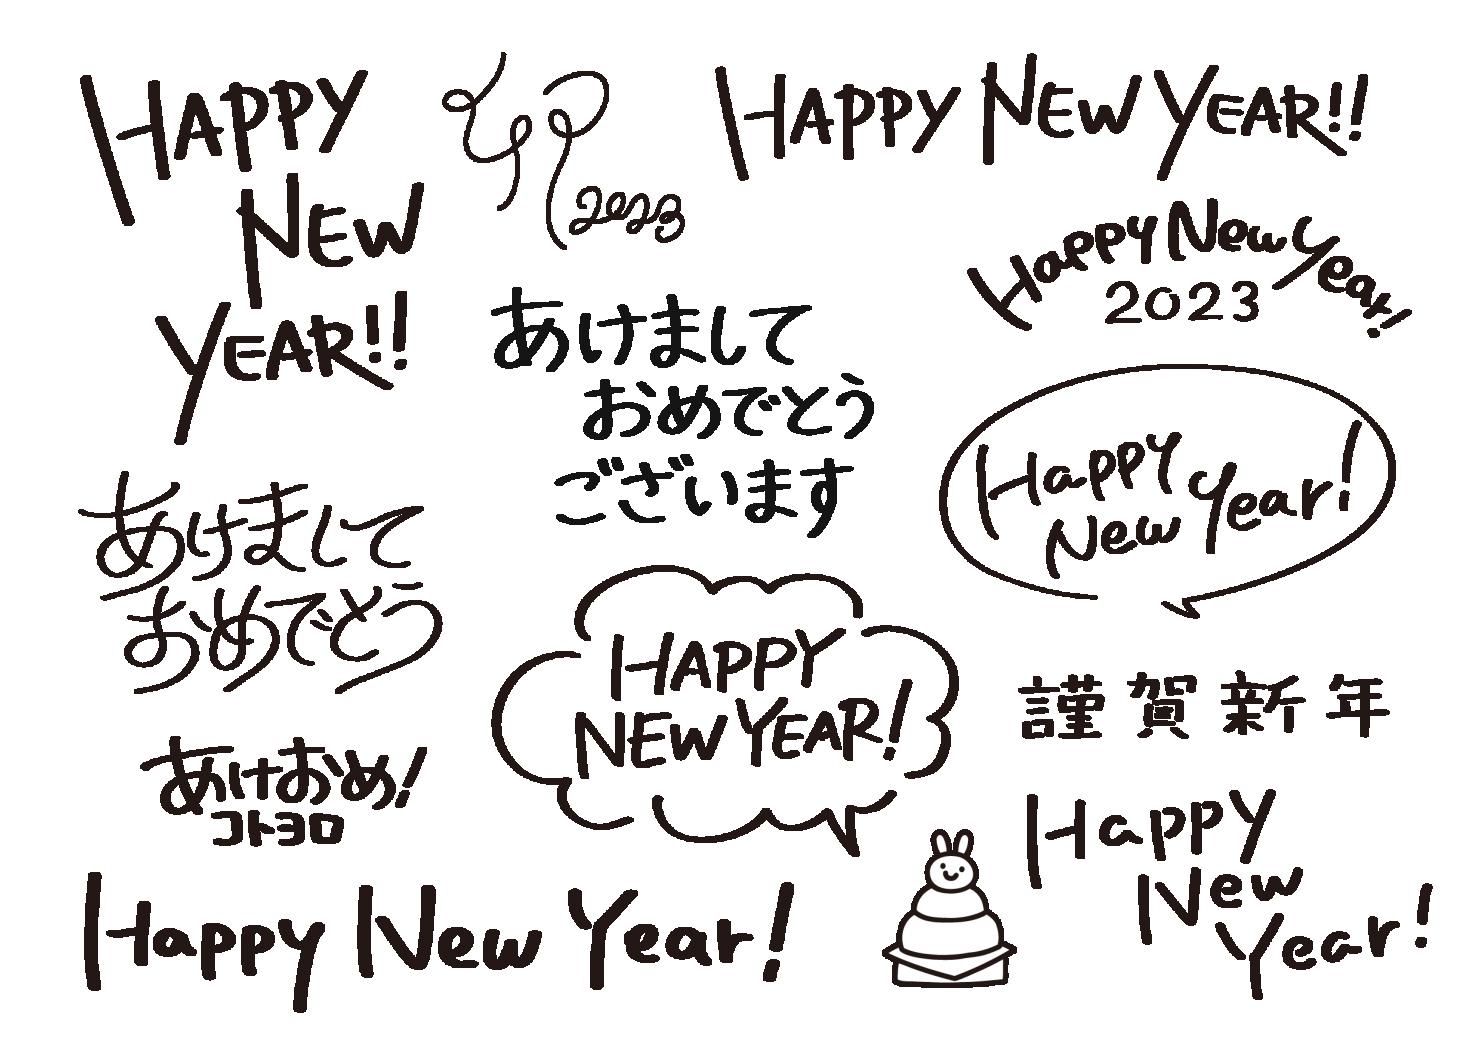 HAPPY
NEW
YEAR!!
卯
2023
HAPPY NEW YEAR!!
Happy New Year!
2023
あけまして
おめでとう
ございます
Happy
New Year!
あけまして
おめでとう
HAPPY
NEW YEAR!
謹賀新年
あけおめ!
コトヨロ
Happy
New
Year!
Happy New Year!